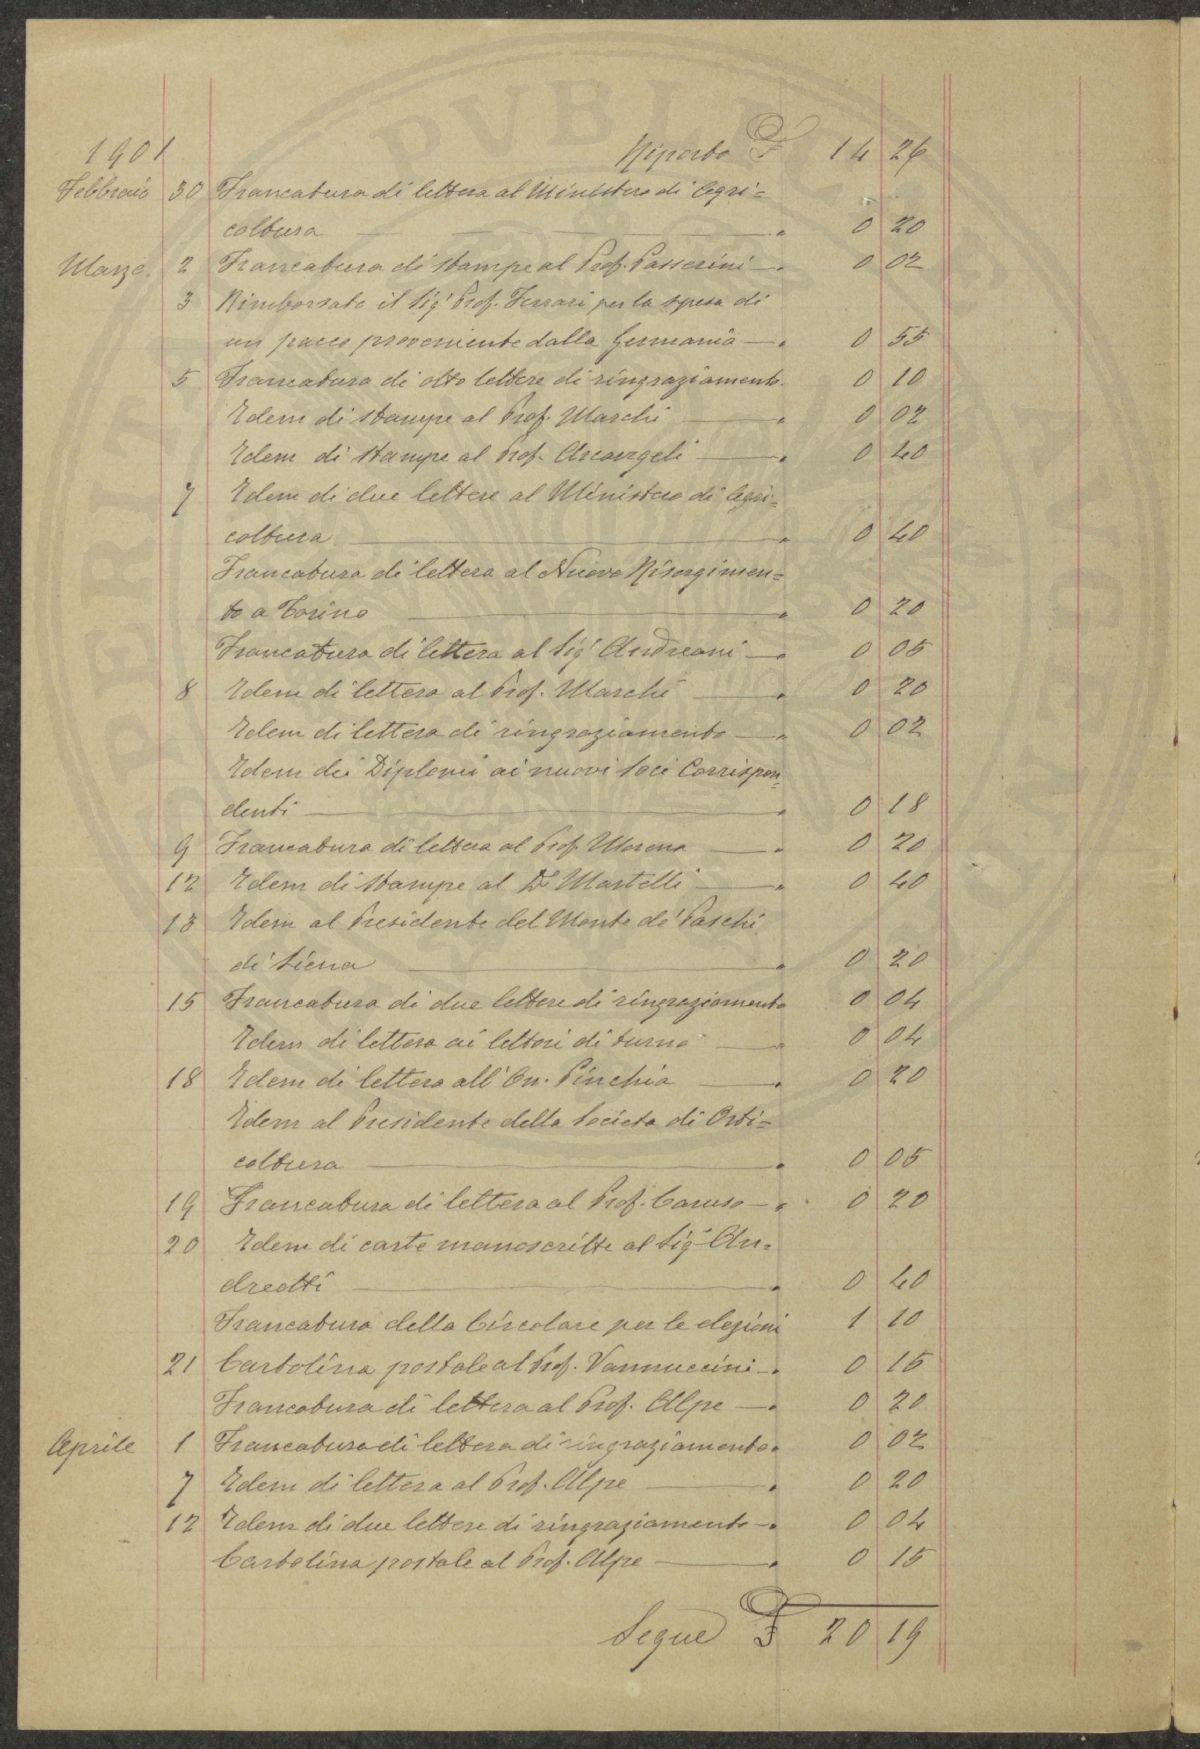 1901 Riporto F 14 26
Febbraio 30 Francatura di lettera al Ministero di Agri=
coltura 0 20
Marzo 2 Francatura di stampe al Prof. Passerini 0 02
3 Rimborsato il Sig. Prof. Ferrari per la spesa di
un pacco proveniente dalla Germania 0 55
5 Francatura di otto lettere di ringraziamento 0 10
Idem di stampe al Prof. Marchi 0 02
Idem di stampe al Prof. Arcangeli 0 40
7 Idem di due lettere al Ministero di Agri=
coltura 0 40
Francatura di lettera al Nuovo Risorgimen=
to a Torino 0 20
Francatura di lettera al Sig. Andreani 0 05
8 Idem di lettera al Prof. Marchi 0 20
Idem di lettera di ringraziamento 0 02
Idem dei Diplomi ai nuovi Soci Corrispon=
denti 0 18
9 Francatura di lettera al Prof. Morena 0 20
12 Idem di stampe al Dr. Martelli 0 40
13 Idem al Presidente del Monte de' Paschi
di Siena 0 20
15 Francatura di due lettere di ringraziamento 0 04
Idem di lettera ai lettori di turno 0 04
18 Idem di lettera all'On. Pinchia 0 20
Idem al Presidente della Società di Orti=
coltura 0 05
19 Francatura di lettera al Prof. Caruso 0 20
20 Idem di carte manoscritte al Sig. An=
dreotti 0 40
Francatura della Circolare per le elezioni 1 10
21 Cartolina postale al Prof. Vannuccini 0 15
Francatura di lettera al Prof. Alpe 0 20
Aprile 1 Francatura di lettera di ringraziamento 0 02
7 Idem di lettera al Prof. Alpe 0 20
12 Idem di due lettere di ringraziamento 0 04
Cartolina postale al Prof. Alpe 0 15
Segue F 20 19